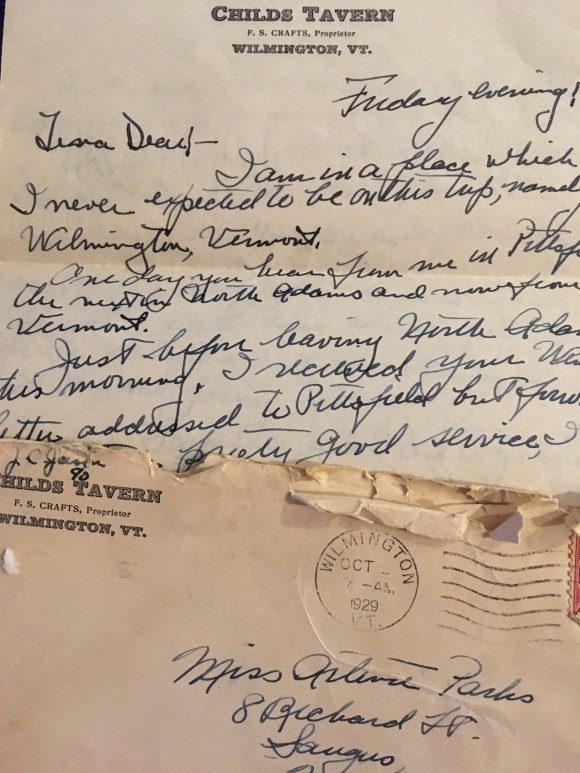 CHILDS TAVERN
F. S. CRAFTS, Proprietor
WILMINGTON, VT.
Friday evening!
Dear!—
I am in a place which
I never expected to be on this trip, namel
Wilmington, Vermont.
One day you hear from me in Pittsf
the next in North Adams and now from
Vermont.
Just before leaving North Ada
this morning, I received your We
letter addressed to Pittsfield but forw
pretty good service, I
CHILDS TAVERN
F. S. CRAFTS, Proprietor
WILMINGTON, VT.
WILMINGTON
OCT
AM
1929
VT.
Miss Parks
8 St.
Saugus,